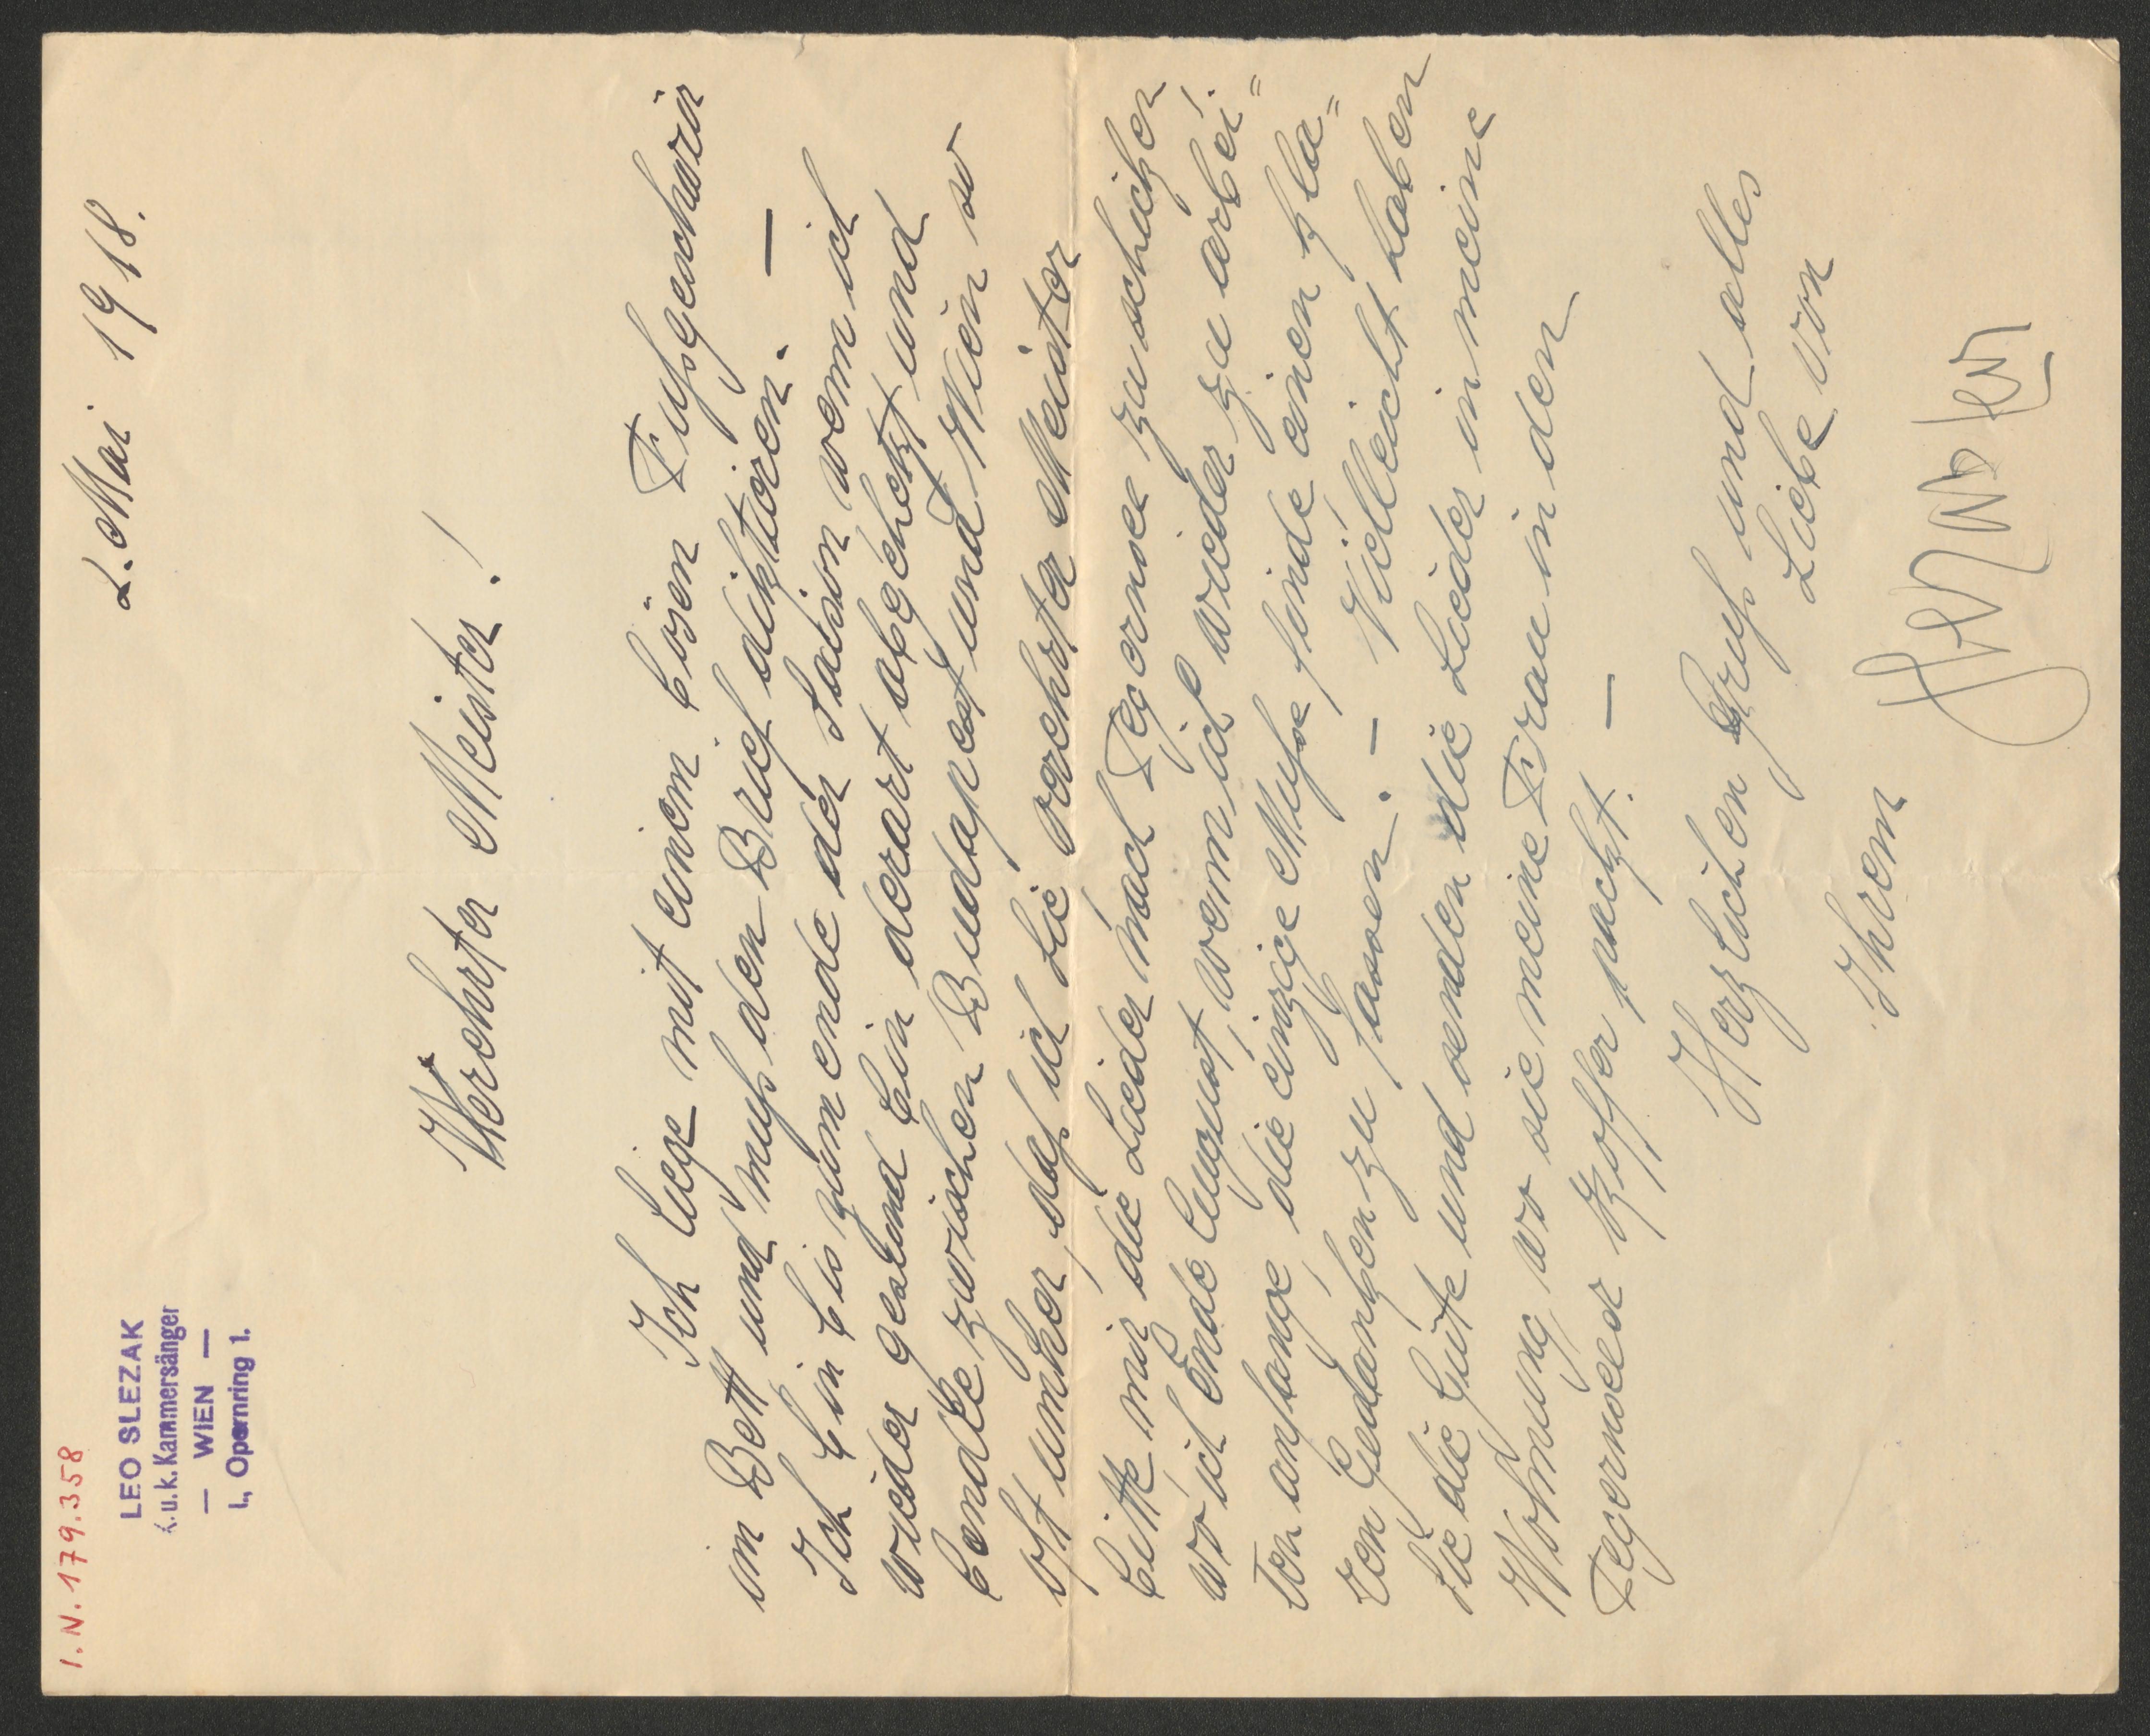 I.N. 179.358
LEO SLEZAK
k. u. k. Kammersänger
— WIEN —
I., Opernring 1.
2. Mai 1918.
Verehrter Meister!
Ich liege mit einem bösen Fußgeschwür
im Bett und muß den Brief diktieren. —
Ich bin bis zum ende der Saison wenn ich
wieder gesund bin derart abgehetzt und
pendle zwischen Budapest und Wien so
oft umher, daß ich Sie verehrter Meister
bitte mir die Lieder nach Tegernsee zu schicken
wo ich ende August, wenn ich wieder zu arbei=
ten anfange, die einzige Muße finde einen kla=
ren Gedanken zu fassen. — Vielleicht haben
Sie die Güte und senden die Lieder in meine
Wohnung, wo sie meine Frau in den
Tegernseer Koffer packt. —
Herzlichen Gruß und alles
Liebe von
Ihrem